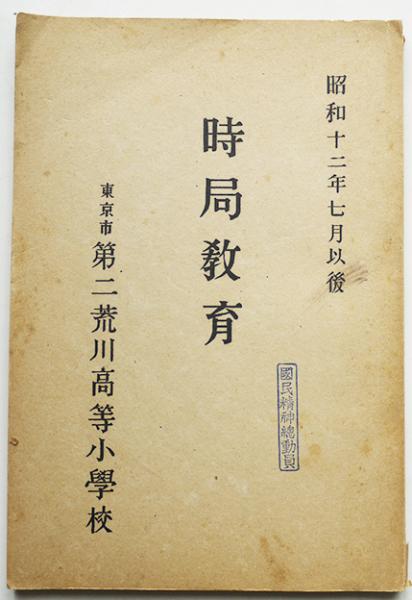 昭和十二年七月以後
時局教育
東京市 第二荒川高等小學校
國民精神總動員